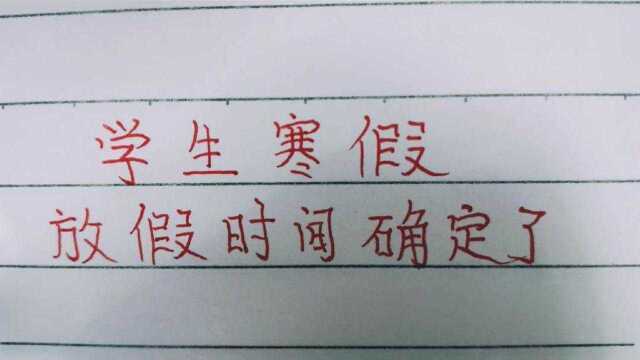 学生寒假
放假时间确定了